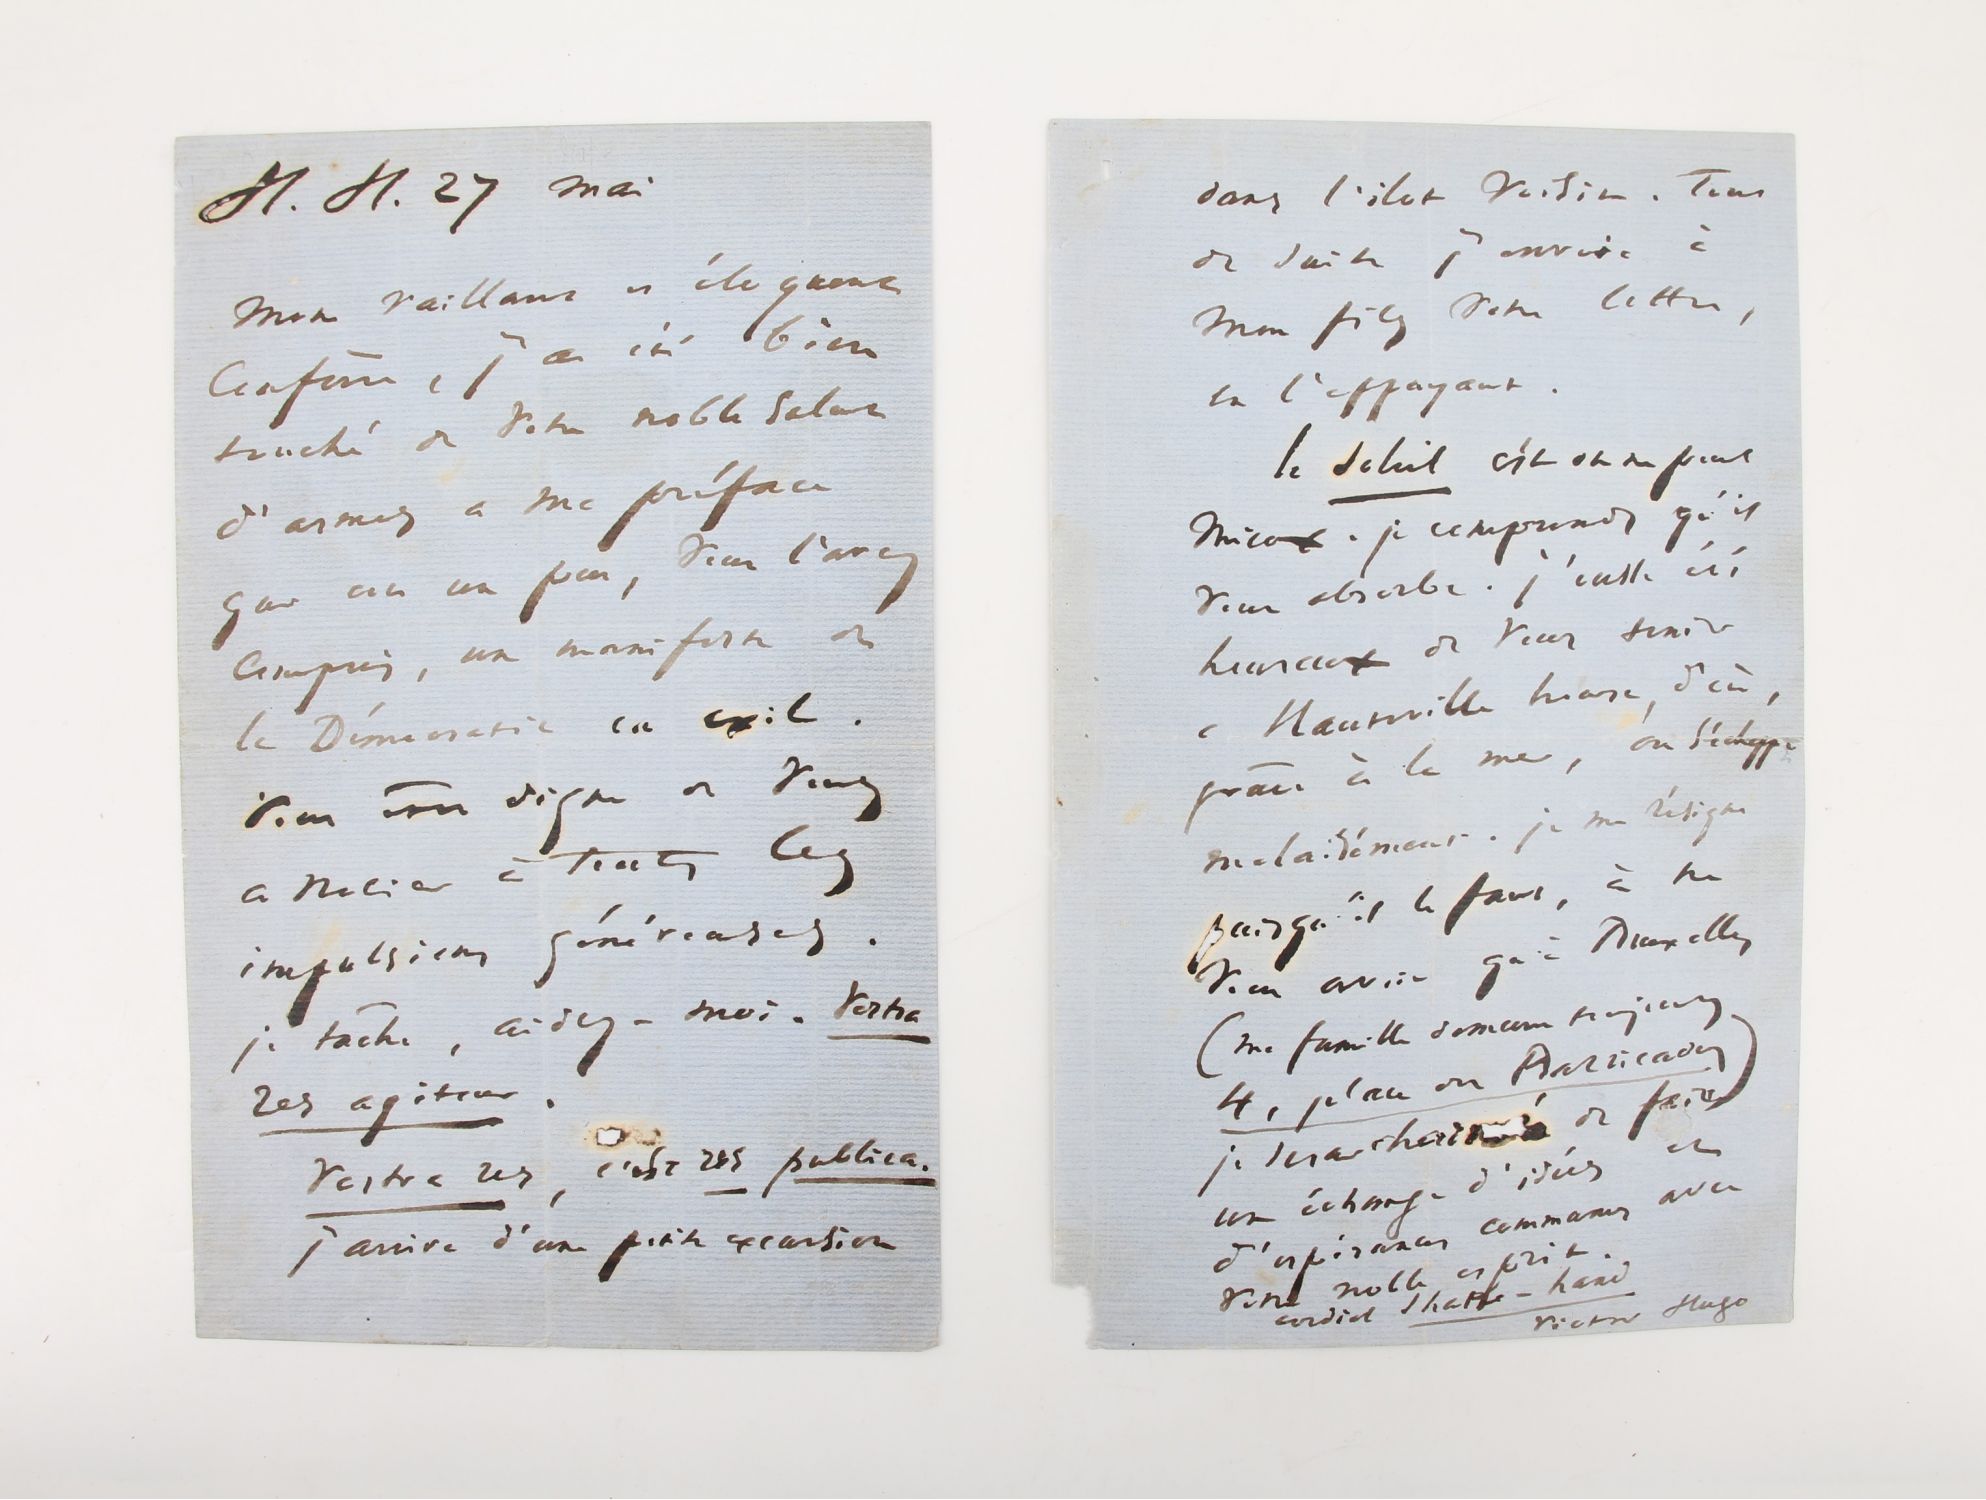 H. H. 27 mai
Mon vaillant et éloquent
Confrère, j'ai été bien
touché de votre noble salut
d'armes à ma préface
qui est un peu, vous l'avez
compris, un manifeste de
la Démocratie en exil.
Vous êtes digne de vous
associer à toutes les
impulsions généreuses.
je tâche, aidez-moi. Vestra
res agitur.
Vestra res, c'est res publica.
j'arrive d'une petite excursion
dans l'ilot voisin. Tout
de suite j'envoie à
mon fils votre lettre,
en l'appuyant.
le Soleil, c'est on ne peut
mieux. je comprends qu'il
vous absorbe. j'eusse été
heureux de vous tenir
à Hauteville house, d'où,
grâce à la mer, on s'échappe
malaisément. je me résigne
puisqu'il le faut, à ne
vous avoir qu'à Bruxelles
(ma famille demeure toujours
4, place des Barricades)
je serai charmé de faire
un échange d'idées et
d'espérances communes avec
votre noble esprit.
cordial shake-hand
Victor Hugo